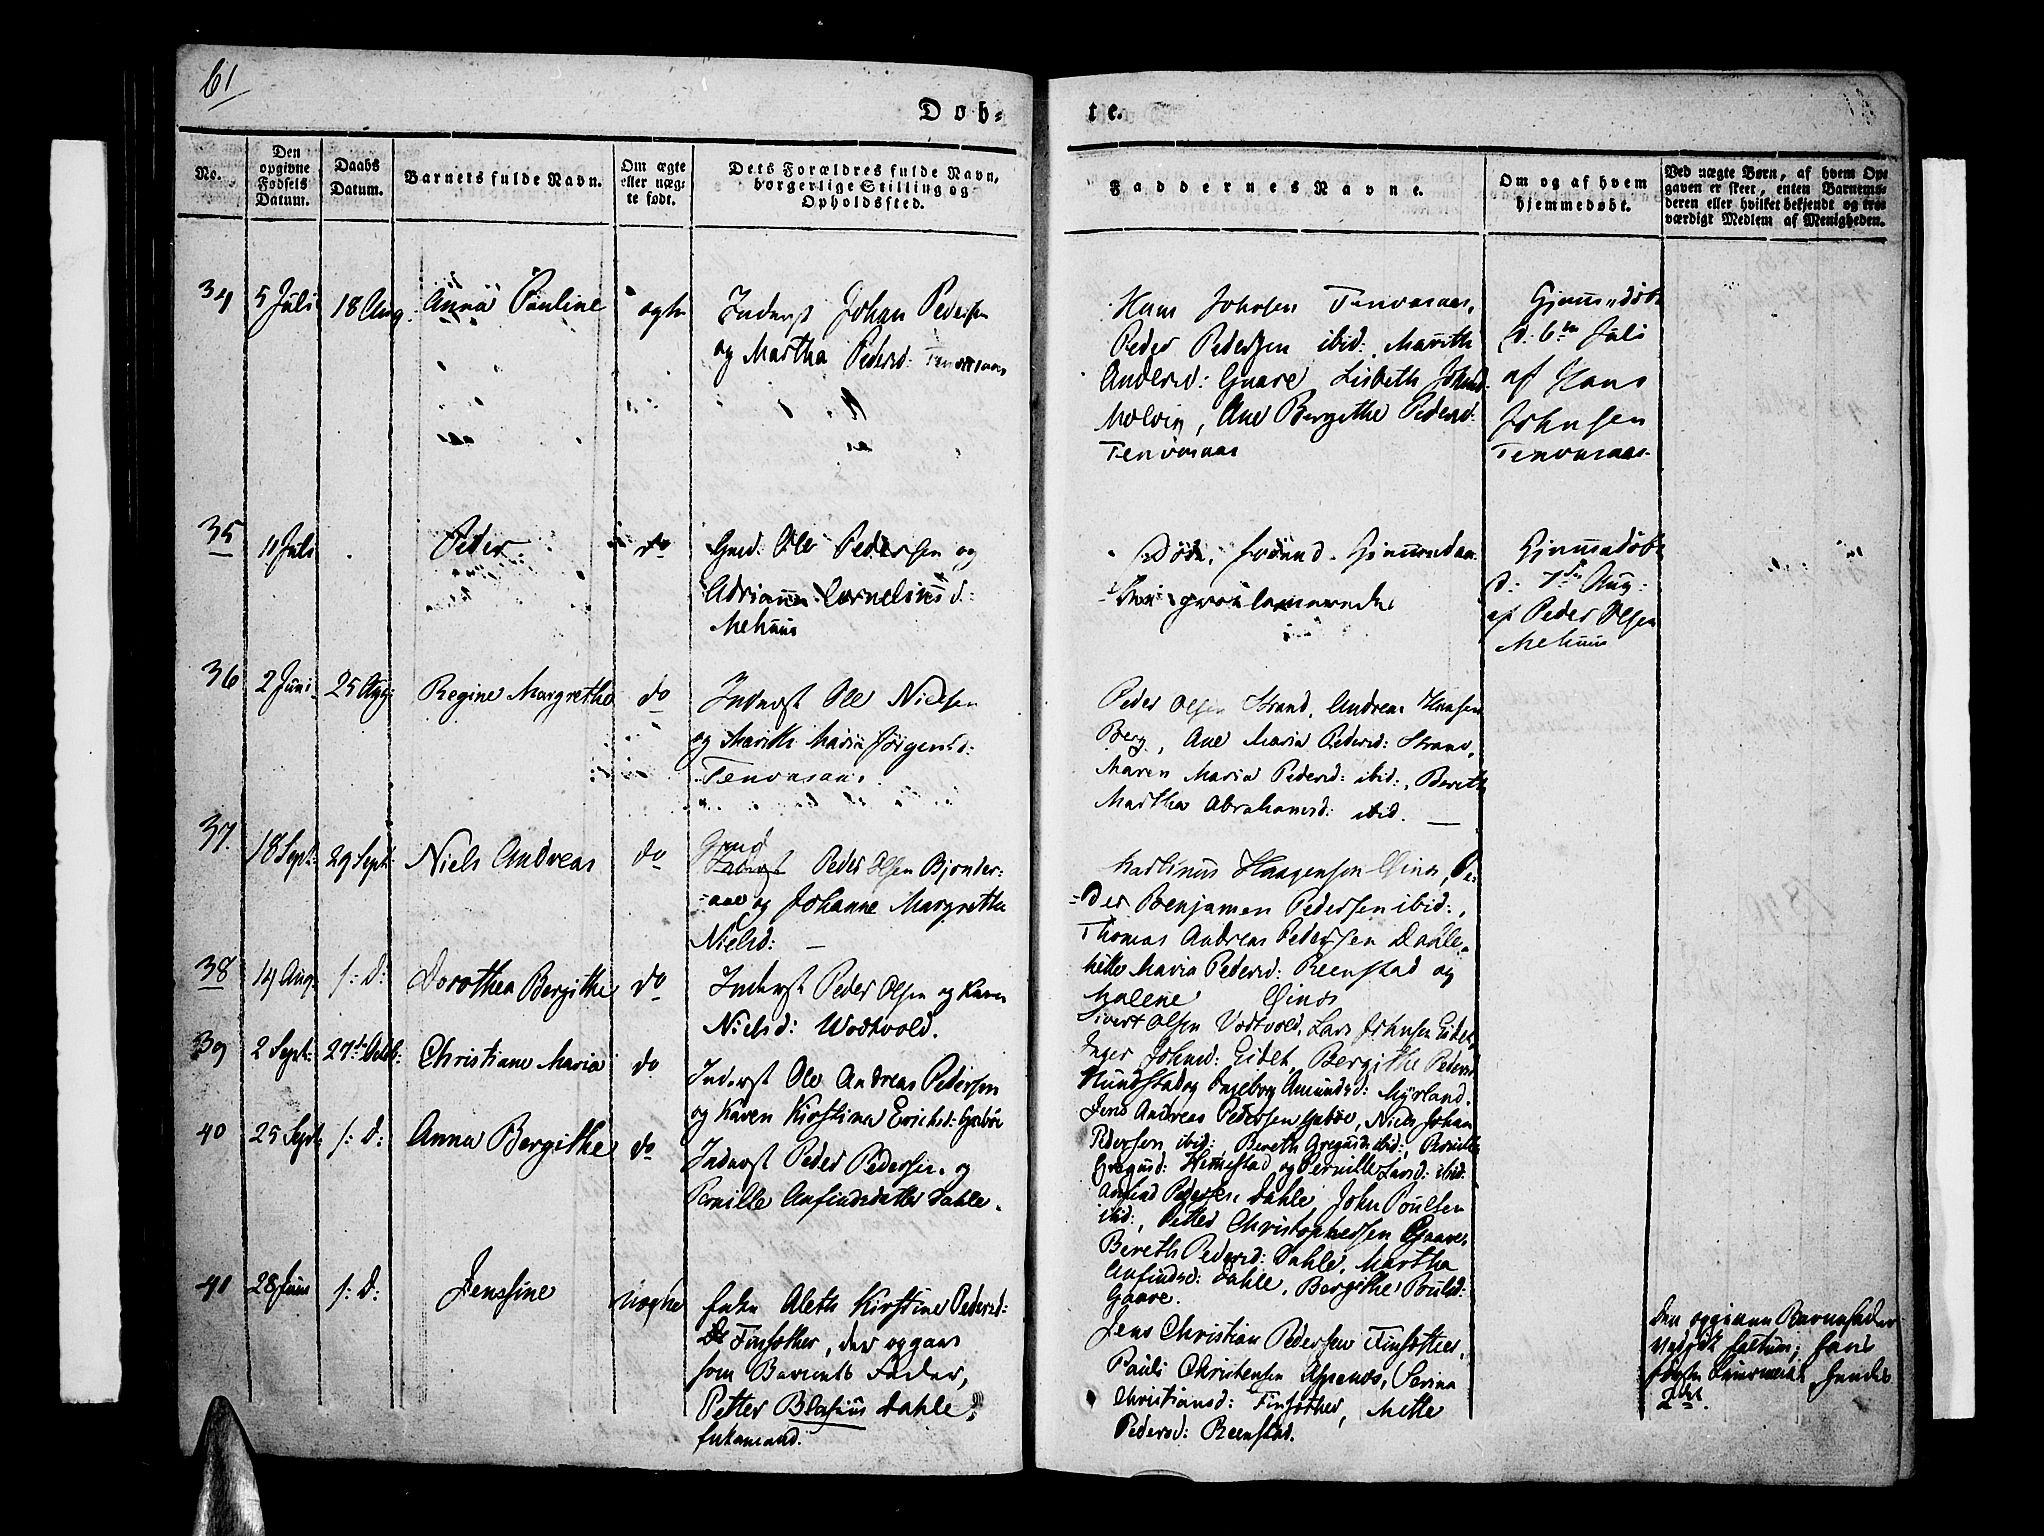 61
Dob-
te.
No.
Den opgivne Fødsels Datum.
Daabs Datum.
Barnets fulde Navn.
Om ægte eller uægte født.
Dets Forældres fulde Navn, borgerlige Stilling og Opholdssted.
Faddernes Navne.
Om og af hvem hjemmedøbt.
Ved uægte Børn, af hvem Opgaven er skeet, enten Barnemoderen eller hvilket bekjendt og troværdigt Medlem af Menigheden.
34
5 Juli
18 Aug.
Anna Pauline
ægte
Inderst Johan Pedersen
og Martha Pedersd:
Hans Johnsen
Peder Pedersen ibid: Marith
Andersd: Gaare Lisbeth Johnsd:
Ane Bergithe Pedersd:
Hjemmedøbt
d. 6te Juli
af Hans
Johnsen
35
11 Juli
Peder
do
Gmd. Ole Pedersen og
Adriana Corneliusd:
Mehuus
Død, forend Hjemmedaa-
Hjemmedøbt
d: 7de Aug:
af Peder Olsen
Mehuus
36
2 Juni
25 Aug:
Regine Margrethe
do
Inderst Ole Nielsen
og Marith Maria Jørgensd:
Peder Olsen Strand, Andreas Hansen
Berg, Ane Maria Pedersd: Strand,
Maren Maria Pedersd: ibid:, Bereth
Martha Abrahamsd: ibid.
37.
18 Sept:
29 Sept:
Niels Andreas
do
Gmd
Inderst Peder Olsen Bjønder-
-aae og Johanne Margrethe
Nielsd:
Martinus Haagensen Gines, Pe-
-der Benjamen Pedersen ibid:,
Thomas Andreas Pedersen Dahle,
Mette Maria Pedersd: Reenstad og
Malene Gines
38
14 Aug.
s: d:
Dorothea Bergithe
do
Inderst Peder Olsen og Karen
Nielsd: Wodtvold.
Sivert Olsen Vodtvold, Lars Johnsen Eidet,
Inger Johnsd: Eidet, Bergithe Pedersd:
Hundstad og Ingeborg Amundsd: Myrland.
39
2 Sept:
27de Octb:
Christiane Maria
do
Inderst Ole Andreas Pedersen
og Karen Kirstina Erichsd: Gabøe
Jens Andreas Pedersen Gabøe, Niels Johan
Pedersen ibid:, Bereth Gregusd: ibid:, Pernille
Gregusd: Hemstad og Pernille Larsd: ibid:
40
25 Sept:
s: d:
Anna Bergithe
do
Inderst Peder Pedersen og
Pernille Anfindsdatter Dahle.
Anfind Pedersen Dahle, John Poulsen
ibid:, Petter Christophersen Gaare,
Bereth Pedersd: Dahle, Martha
Anfindsd: Dahle, Bergithe Poulsd:
Gaare.
41
28 Juni
s: d:
Jensine
uægte
Enke Aleth Kirstine Pedersd:
Finsæther, der opgav
som Barnets Fader,
Petter Blasius Dahle,
Enkemand.
Jens Christian Pedersen Finsæther,
Pauli Christensen Agenes, Serina
Christiansd: Finsæther, Mette
Pedersd: Reenstad.
Den opgivne Barnefader
vedgik factum; hans
første Leiermaal, hendes
2det.